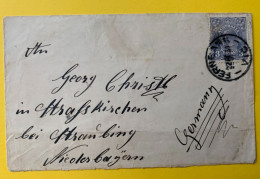 An
Georg Christl
in Strasskirchen
bei Straubing
Niederbayern
Germany